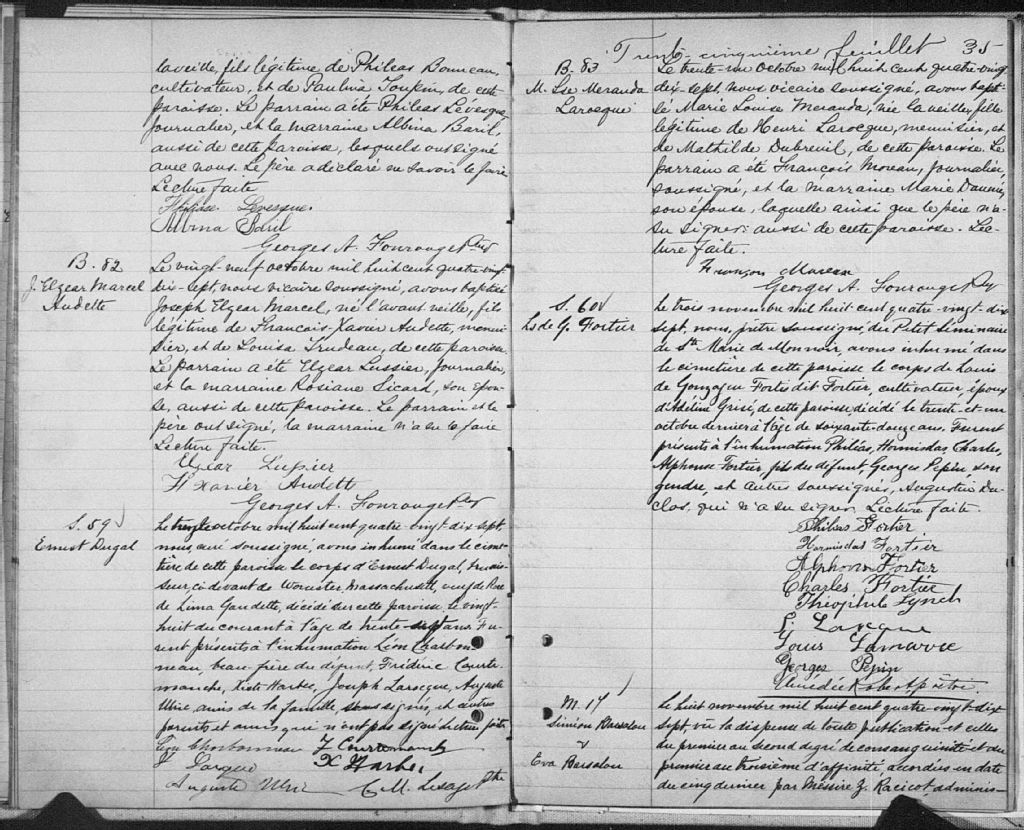 la veille, fils légitime, de Phileas Bonneau,
cultivateur, et de Paulina Toupin, de cette
paroisse. Le parrain a été Phileas Lévesque,
journalier, et la marraine Albina Baril,
aussi de cette paroisse, lesquels ont signé
avec nous. Le père a déclaré ne savoir le faire
Lecture faite
Phileas Levesque
Albina Baril
Georges A. Fourouget Ptre
B. 82
J. Elzear Marcel
Audette
Le vingt-neuf octobre mil huit cent quatre-vingt
dix-sept, nous vicaire soussigné, avons baptisé
Joseph Elzear Marcel, né l'avant veille, fils
légitime de Francois-Xavier Audette, menui
sier, et de Louisa Trudeau, de cette paroisse.
Le parrain a été Elzear Lussier, journalier,
et la marraine Rosiane Sicard, son épou-
se, aussi de cette paroisse. Le parrain et le
père ont signé, la marraine n'a su le faire
Lecture faite.
Elzear Lussier
F Xavier Audette
Georges A. Fourouget Ptre
S. 59
Ernest Dugal
Le trente octobre mil huit cent quatre vingt dix sept,
nous, curé soussigné, avons inhumé dans le cime
tière de cette paroisse le corps d'Ernest Dugal, menui
sier, ci-devant de Worcester, Massachusetts, veuf de Rose
de Lima Gaudette, décédé sur cette paroisse, le vingt-
huit du courant à l'âge de trente-sept ans. Fu
rent présents à l'inhumation Léon Charbon
neau, beau-frère du défunt, Frédéric Courte
manche, Xiste Harbec, Joseph Larocque, Auguste
Ulric, amis de la famille soussignés, et autres
parents et amis qui n'ont pas signé. Lecture faite
Léon Charbonneau F Courtemanche
J Larocque X Harbec
Auguste Ulric C. M. Lesage Ptre
Trente-cinquième feuillet 35
B. 83
M. Lse Meranda
Larocque
Le trente-un octobre mil huit cent quatre-vingt
dix-sept, nous vicaire soussigné, avons bapti-
sé Marie Louise Meranda, née la veille, fille
légitime de Henri Larocque, menuisier, et
de Mathilde Dubreuil, de cette paroisse. Le
parrain a été François Moreau, journalier,
soussigné, et la marraine Marie
son épouse, laquelle ainsi que le père n'a
su signer: aussi de cette paroisse. Lec-
ture faite.
François Moreau
Georges A. Fourouget Ptre
S. 60
Ls de G. Fortier
Le trois novembre mil huit cent quatre-vingt-dix
sept, nous, prêtre soussigné, du Petit Séminaire
de Ste Marie de Monnoir, avons inhumé dans
le cimetière de cette paroisse le corps de Louis
de Gonzague Fortis dit Fortier, cultivateur, époux
d'Adéline Grisé, de cette paroisse, décédé le trente-et-un
octobre dernier à l'âge de soixante-douze ans. Furent
présents à l'inhumation Philéas, Hormisdas, Charles,
Alphonse Fortier, fils du défunt, Georges Pepin son
gendre, et autres soussignés, Augustin Du-
clos, qui n'a su signer. Lecture faite.
Phileas Fortier
Hormisdas Fortier
Alphonse Fortier
Charles Fortier
Théophile Lynch
Larocque
Louis Lamarre
Georges Pepin
Amédée Robert, prêtre.
M. 17
Siméon Barsalou
&
Eva Barsalou
Le huit novembre mil huit cent quatre-vingt-dix
sept, vu la dispense de toute publication et celles
du premier au second degré de consanguinité et du
premier au troisième d'affinité, accordées en date
du cinq dernier par Messire Z. Racicot, adminis-